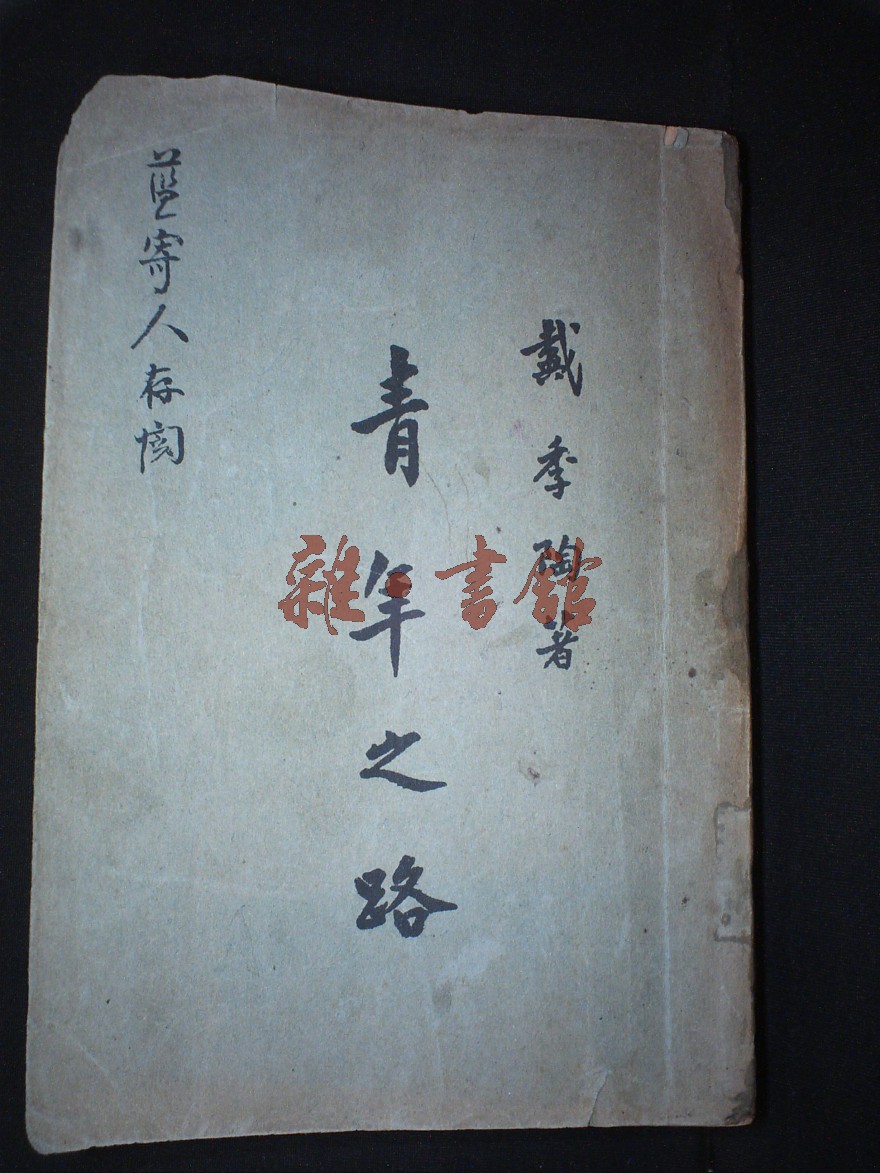 戴季陶著
青年之路
蓝寄人存阅
雜·書館